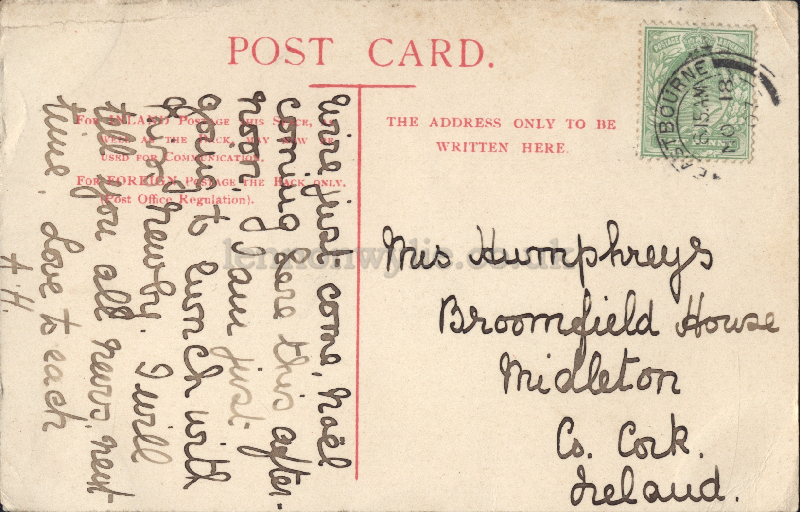 POST CARD.
For INLAND Postage this Space,
well as the Back, may now be
used for Communication.
For FOREIGN Postage the Back only.
(Post Office Regulation).
THE ADDRESS ONLY TO BE
WRITTEN HERE.
Wire just come, Noël
coming here this after-
noon. I am just
going to lunch with
Newby. I will
tell you all news, next
time. Love to each
A.H.
Mrs Humphreys
Broomfield House
Midleton
Co. Cork.
Ireland.
EASTBOURNE
15 AM
NO 18
lennonwylie.co.uk